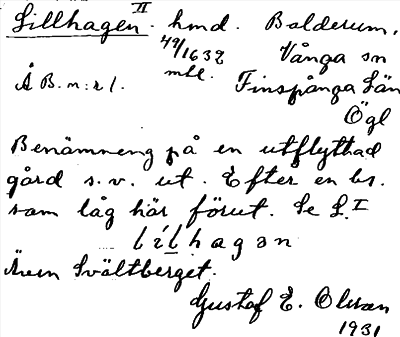 Lillhagen II. hmd. Balderum,
49/1632 Vånga sn
Å B. n:r 1. mtl. Finspånga Län
Ögl
Benämneng på en utflyttad
gård s.v. ut. Efter en bs.
som låg här förut. Se L. I
lilhagan
Även Svältberget.
Gustaf E. Olsson
1931